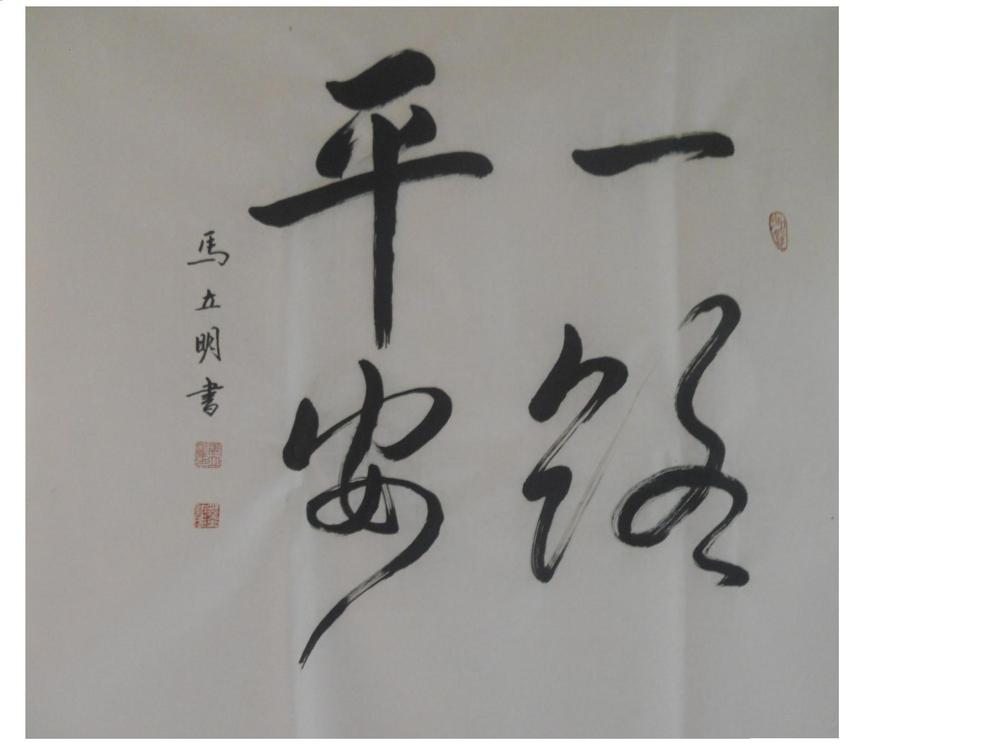 一路
平安
馬立明書